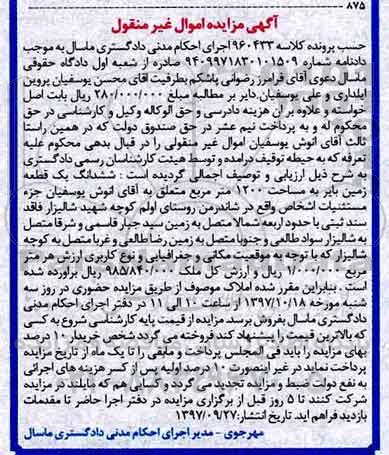 ۸۷۵
آگهی مزایده اموال غیر منقول
حسب پرونده کلاسه ۹۶۰۴۳۳ اجرای احکام مدنی دادگستری ماسال به موجب
دادنامه شماره ۹۴۰۹۹۷۱۸۳۰۱۰۱۵۰۹ صادره از شعبه اول دادگاه حقوقی
ماسال دعوی آقای فرامرز رضوانی پاشکم بطرفیت اقای محسن یوسفیان پروین
ایلداری و علی یوسفیان.دایر بر مطالبه مبلغ ۲۸۰/۰۰۰/۰۰۰ ریال بابت اصل
خواسته و علاوه بر آن هزینه دادرسی و حق الوکاله وکیل و کارشناسی در حق
محکوم له و به پرداخت نیم عشر در حق صندوق دولت که در همین راستا
ثالث آقای انوش یوسفیان اموال غیر منقولی را در قبال بدهی محکوم علیه
تعرفه که به حیطه توقیف درآمده و توسط هیئت کارشناسان رسمی دادگستری
به شرح ذیل ارزیابی و توصیف اجمالی گردیده است : ششدانگ یک قطعه
زمین بایر به مساحت ۱۲۰۰ متر مربع متعلق به آقای انوش یوسفیان جزء
مستثنیات اشخاص واقع در شاندرمن روستای اولم کوچه شهید شالیزار فاقد
سند ثبتی با حدود اربعه شمالا متصل به زمین سید جبار قاسمی و شرقا متصل
به شالیزار سواد طالعی و جنوبا متصل به زمین رضا طالعی و غربا متصل به کوچه
شالیزار که با توجه به موقعیت مکانی و جغرافیایی و نوع کاربری ارزش هر متر
مربع ۱/۰۰۰/۰۰۰ ریال و ارزش کل ملک ۹۸۵/۸۴۰/۰۰۰ ریال براورده شده
است . بنابراین مقرر شده املاک موصوف از طریق مزایده حضوری در روز سه
شنبه مورخه ۱۳۹۷/۱۰/۱۸ از ساعت ۱۰ الی ۱۱ در دفتر اجرای احکام مدنی
دادگستری ماسال بفروش برسد. مزایده از قیمت پایه کارشناسی شروع به کسی
که بالاترین قیمت را پیشنهاد کند فروخته می گردد شخص خریدار ۱۰ درصد
بهای مزایده را باید فی المجلس پرداخت و مابقی را تا یک ماه از تاریخ مزایده
پرداخت نماید در غیر اینصورت ۱۰ درصد اولیه پس از کسر هزینه های اجرائی
به نفع دولت ضبط و مزایده تجدید می گردد و کسانی هم که مایلند در مزایده
شرکت کنند تا ۵ روز قبل از برگزاری مزایده در دفتر اجرا حاضر تا مقدمات
بازدید فراهم اید. تاریخ انتشار:۱۳۹۷/۰۹/۲۷
مهرجوی - مدیر اجرای احکام مدنی دادگستری ماسال